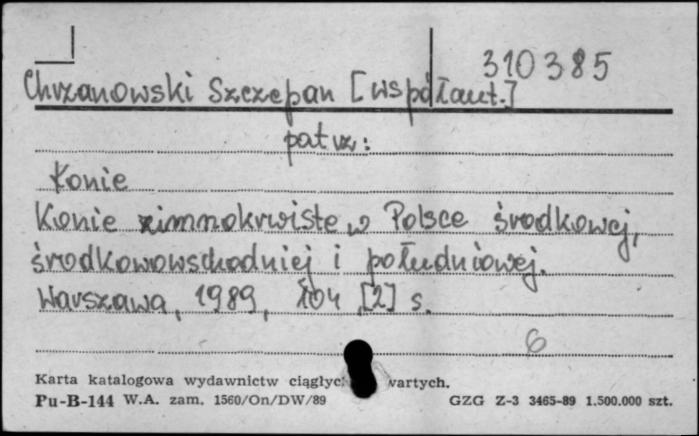 310385
Chrzanowski Szczepan [współaut.]
patrz:
Konie
Konie zimnokrwiste w Polsce środkowej,
środkowowschodniej i południowej.
Warszawa, 1989, 104, [2] s.
6
Karta katalogowa wydawnictw ciągłyc wartych.
Pu-B-144 W.A. zam. 1560/On/DW/89 GZG Z-3 3465-89 1.500.000 szt.